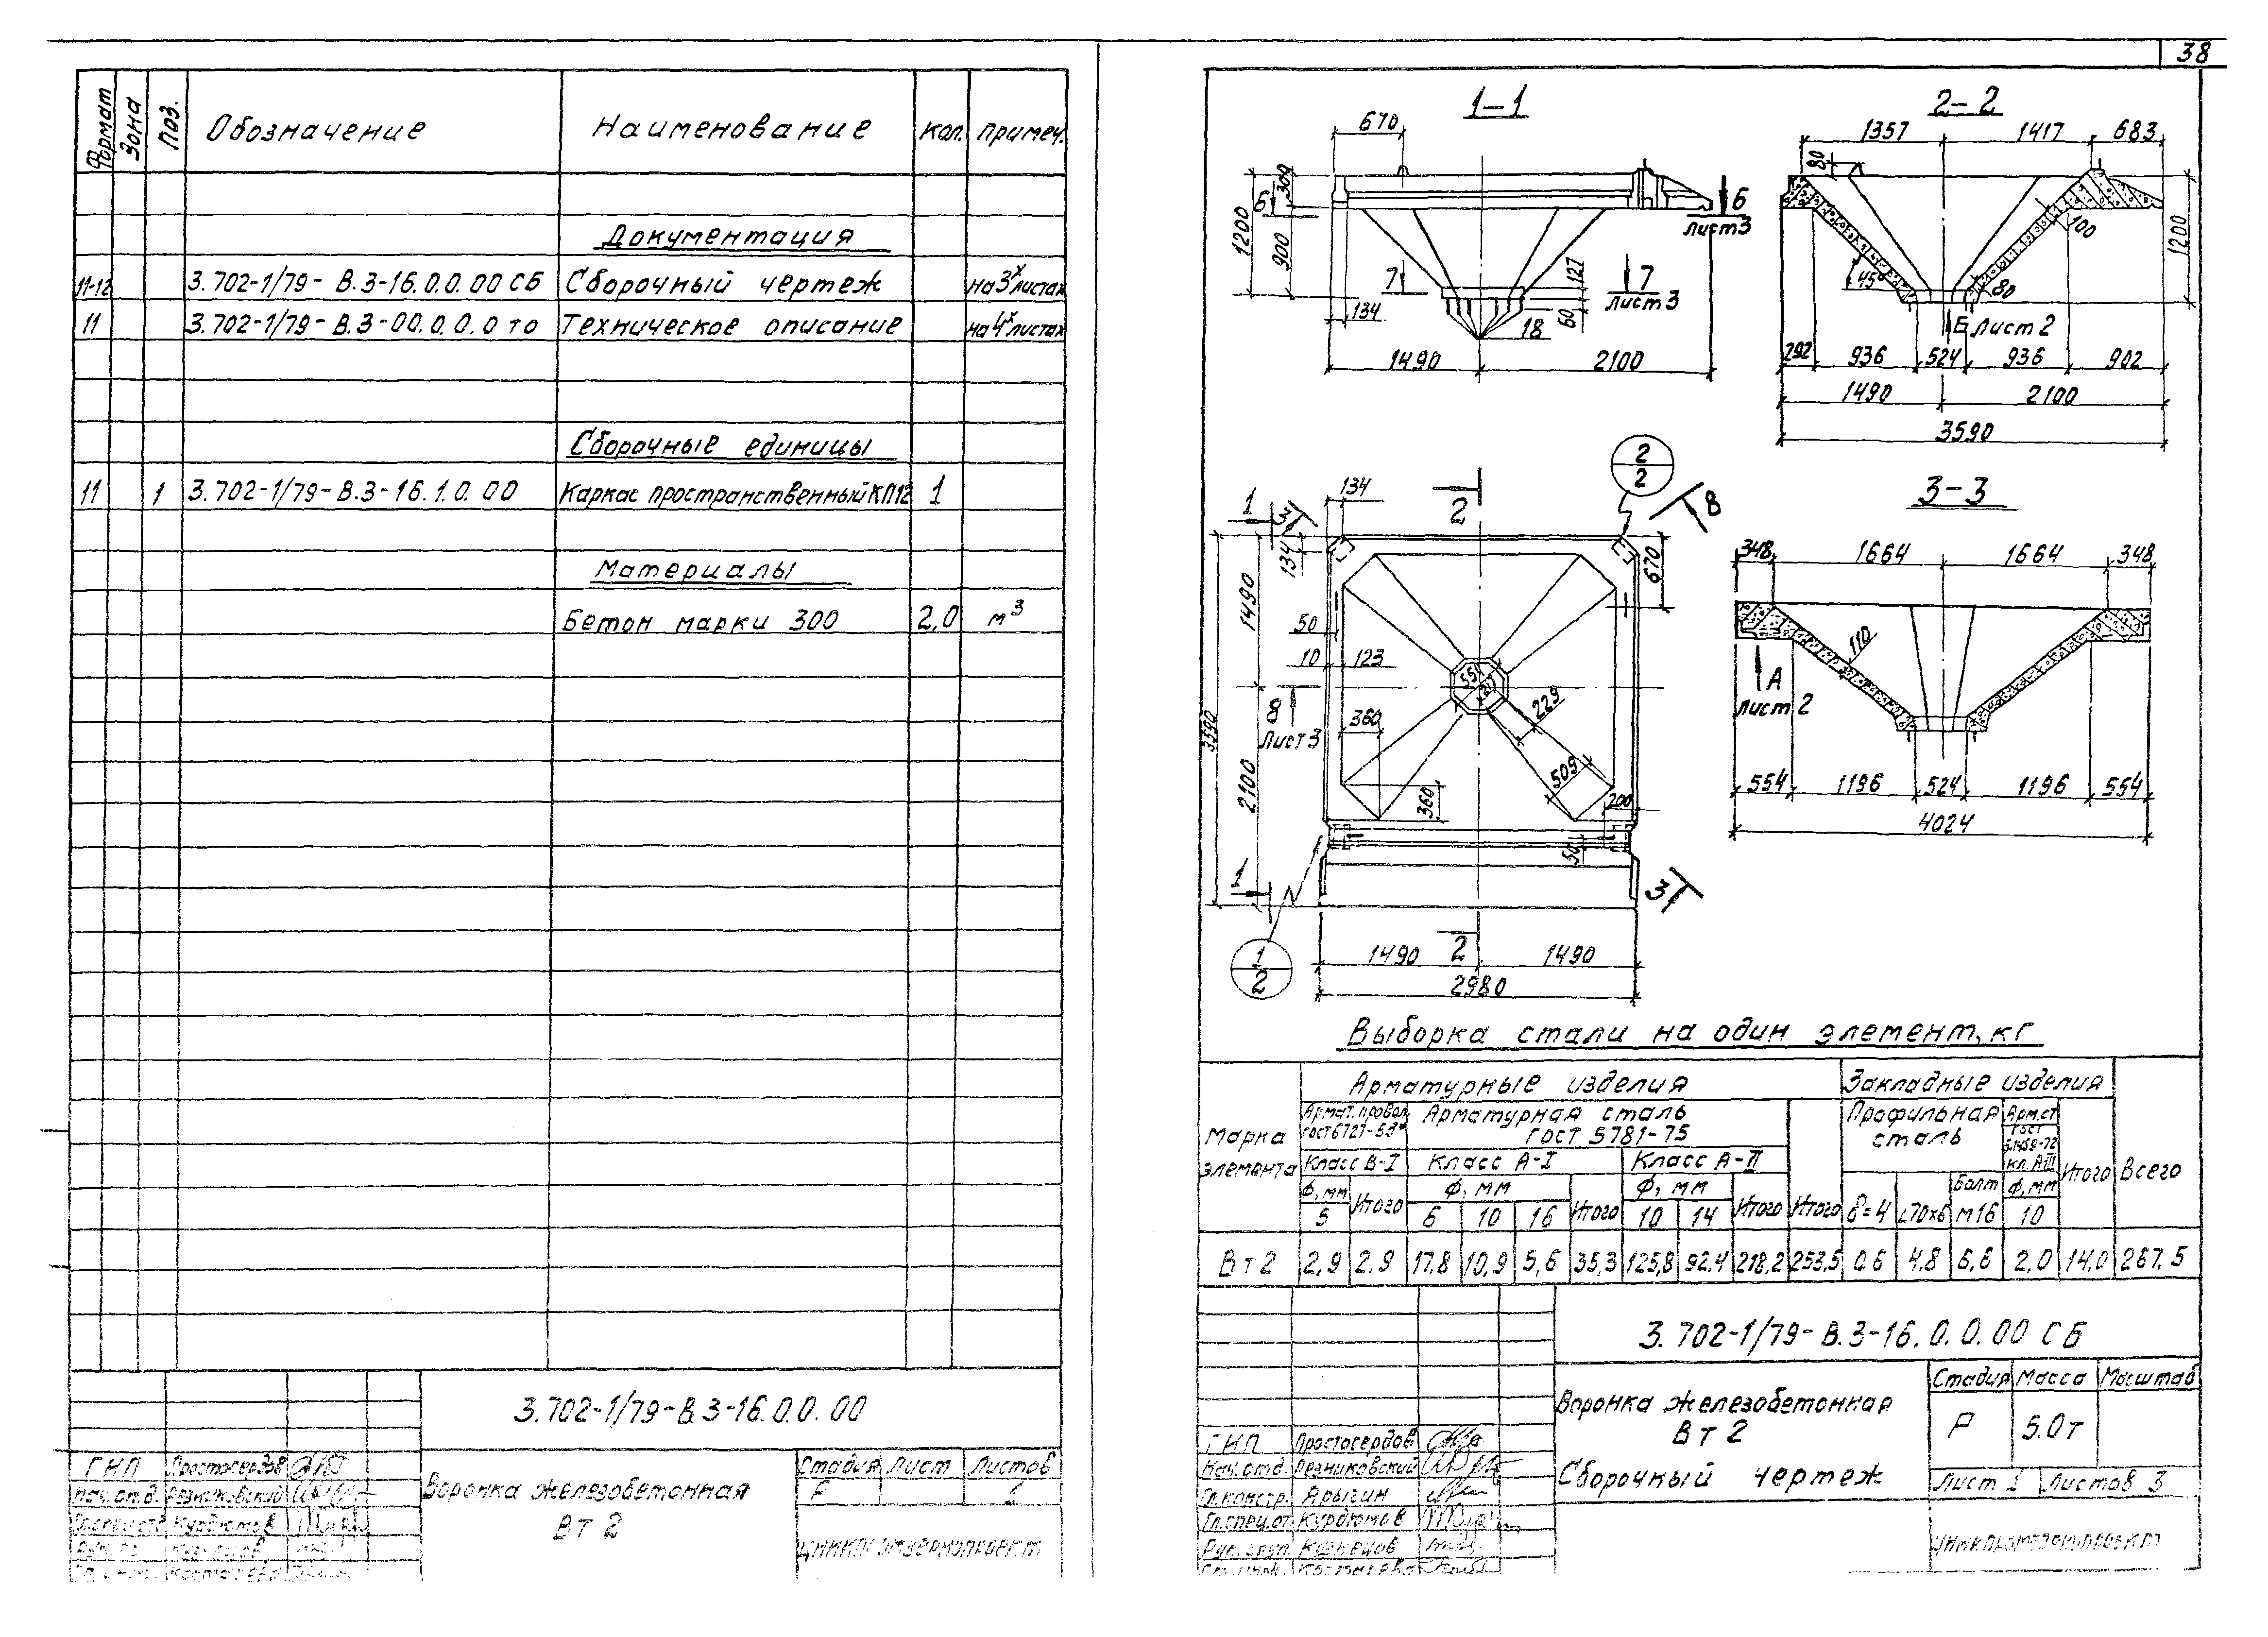 38
Формат Зона Поз. Обозначение Наименование Кол. Примеч.
Документация
11-12 3.702-1/79-В.3-16.0.0.00 СБ Сборочный чертеж на 3х листах
11 3.702-1/79-В.3-00.0.0.0 ТО Техническое описание на 4х листах
Сборочные единицы
11 1 3.702-1/79-В.3-16.1.0.00 Каркас пространственный КП12 1
Материалы
Бетон марки 300 2,0 м³
3.702-1/79-В.3-16.0.0.00
ГИП Простосердов
Нач.отд. Резниковский
Курдюмов
Воронка железобетонная
Вт 2
Стадия Лист Листов
Р 1
1-1
670
1200 300 900
6 6
Лист 3
7 7
Лист 3
127 60
134 18
1490 2100
2-2
1357 1417 683
80 100 1200
45° 80
Б Лист 2
292 936 524 936 902
1490 2100
3590
2
2
134 2 8
1 3
134 670
1490
50
10 123
551 217
229
8
Лист 3
360
3590 2100
509
360 200
50
1 3
1
2
1490 2 1490
2980
3-3
348 1664 1664 348
110
А
Лист 2
554 1196 524 1196 554
4024
Выборка стали на один элемент, кг
Марка элемента
Арматурные изделия Закладные изделия Всего
Армат. провол. ГОСТ 6727-53*
Арматурная сталь ГОСТ 5781-75
Профильная сталь
Арм.ст. ГОСТ 5.1459-72 кл. АIII
Класс В-I Класс А-I Класс А-II
Ф, мм Итого Ф, мм Итого Ф, мм Итого Итого δ=4 L70х6 Болт М16 Ф, мм Итого
5 6 10 16 10 14 10
Вт 2 2,9 2,9 17,8 10,9 5,6 35,3 125,8 92,4 218,2 253,5 0,6 4,8 6,6 2,0 14,0 267,5
3.702-1/79-В.3-16.0.0.00 СБ
Воронка железобетонная
Вт 2
Сборочный чертеж
Стадия Масса Масштаб
Р 5.0т
Лист 1 Листов 3
ГИП Простосердов
Нач.отд. Резниковский
Гл.констр. Арыгин
Гл.спец.от. Курдюмов
Рук.груп. Кузнецов